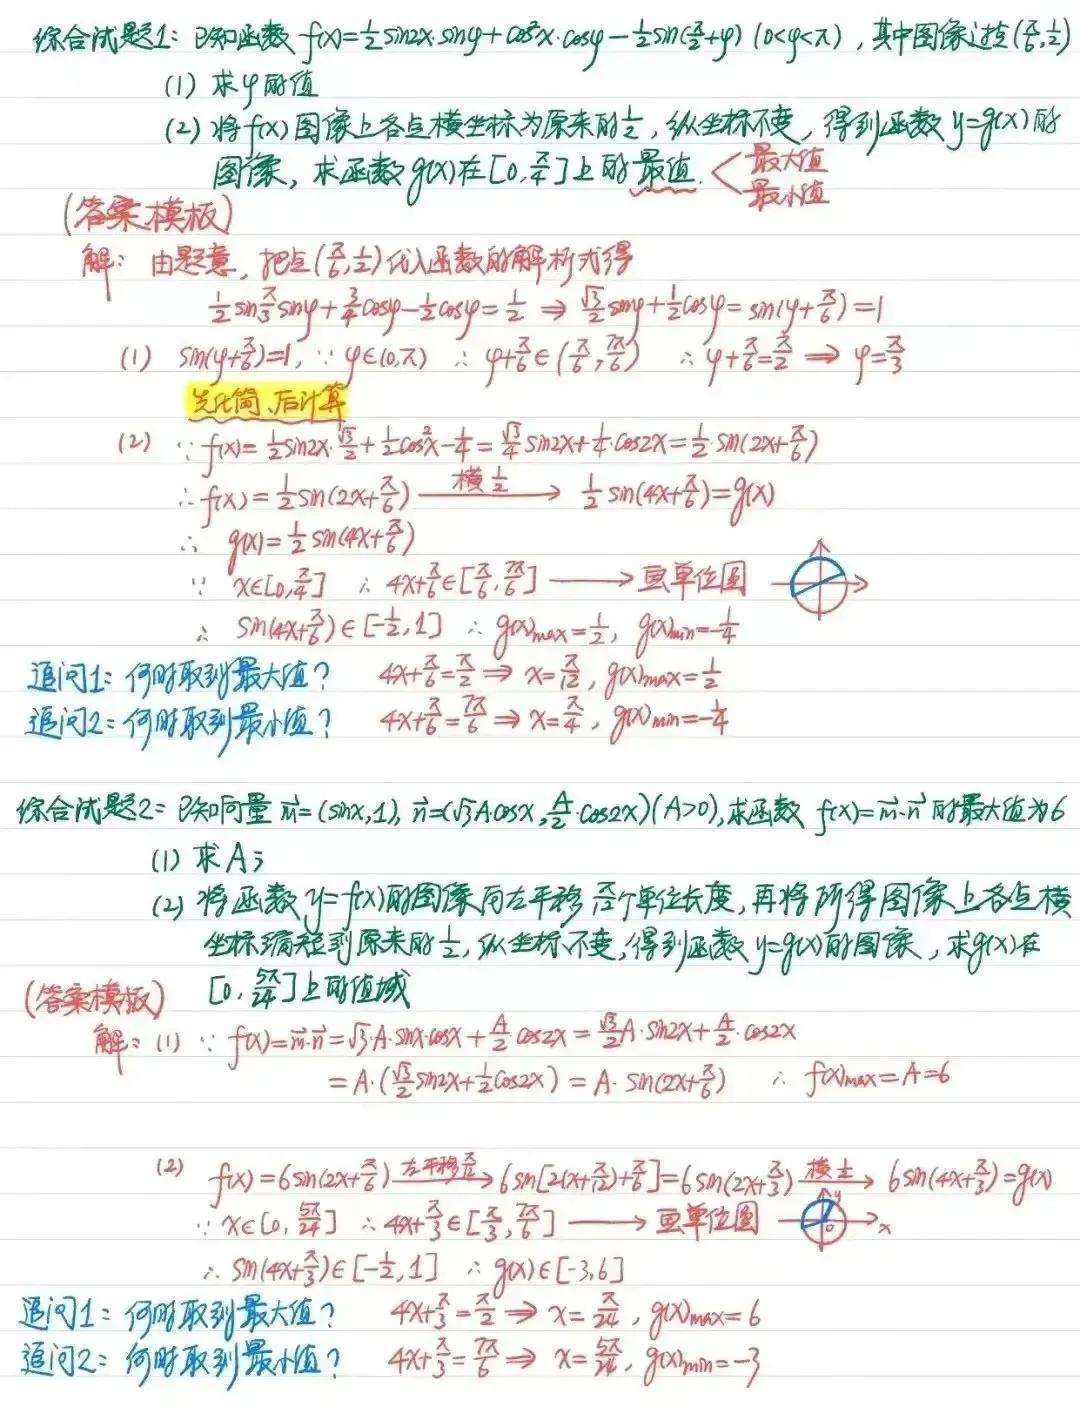 综合试题1: 已知函数 f(x)=½sin2x·sinφ+cos²x·cosφ-½sin(π/2+φ) (0<φ<π), 其中图像过点(π/6,½)
(1) 求φ的值
(2) 将f(x)图像上各点横坐标为原来的½, 纵坐标不变, 得到函数 y=g(x)的
图像, 求函数g(x)在[0,π/4]上的最值. 最大值
最小值
(答案模板)
解: 由题意, 把点(π/6,½)代入函数的解析式得
½sinπ/3sinφ+¾cosφ-½cosφ=½ ⇒ √3/2sinφ+½cosφ=sin(φ+π/6)=1
(1) sin(φ+π/6)=1, ∵ φ∈(0,π) ∴ φ+π/6∈(π/6,7π/6) ∴ φ+π/6=π/2 ⇒ φ=π/3
先化简、后计算
(2) ∵ f(x)=½sin2x·√3/2+½cos²x-¼=√3/4sin2x+¼·cos2x=½·sin(2x+π/6)
∴ f(x)=½sin(2x+π/6) 横½→ ½sin(4x+π/6)=g(x)
∴ g(x)=½sin(4x+π/6)
∵ x∈[0,π/4] ∴ 4x+π/6∈[π/6,7π/6] → 画单位圆
∴ sin(4x+π/6)∈[-½,1] ∴ g(x)max=½, g(x)min=-¼
追问1: 何时取到最大值? 4x+π/6=π/2 ⇒ x=π/12, g(x)max=½
追问2: 何时取到最小值? 4x+π/6=7π/6 ⇒ x=π/4, g(x)min=-¼
综合试题2: 已知向量 m⃗=(sinx,1), n⃗=(√3Acosx,A/2·cos2x)(A>0), 求函数 f(x)=m⃗·n⃗ 的最大值为6
(1) 求A;
(2) 将函数y=f(x)的图像向左平移π/12个单位长度, 再将所得图像上各点横
坐标缩短到原来的½, 纵坐标不变, 得到函数y=g(x)的图象, 求g(x)在
[0,5π/24]上的值域
(答案模板)
解: (1) ∵ f(x)=m⃗·n⃗=√3·A·sinx·cosx+A/2·cos2x=√3/2A·sin2x+A/2·cos2x
=A·(√3/2sin2x+½cos2x)=A·sin(2x+π/6) ∴ f(x)max=A=6
(2) f(x)=6sin(2x+π/6) 左平移π/12→ 6sin[2(x+π/12)+π/6]=6sin(2x+π/3) 横½→ 6sin(4x+π/3)=g(x)
∵ x∈[0,5π/24] ∴ 4x+π/3∈[π/3,7π/6] → 画单位圆 y 0 x
∴ sin(4x+π/3)∈[-½,1] ∴ g(x)∈[-3,6]
追问1: 何时取到最大值? 4x+π/3=π/2 ⇒ x=π/24, g(x)max=6
追问2: 何时取到最小值? 4x+π/3=7π/6 ⇒ x=5π/24, g(x)min=-3